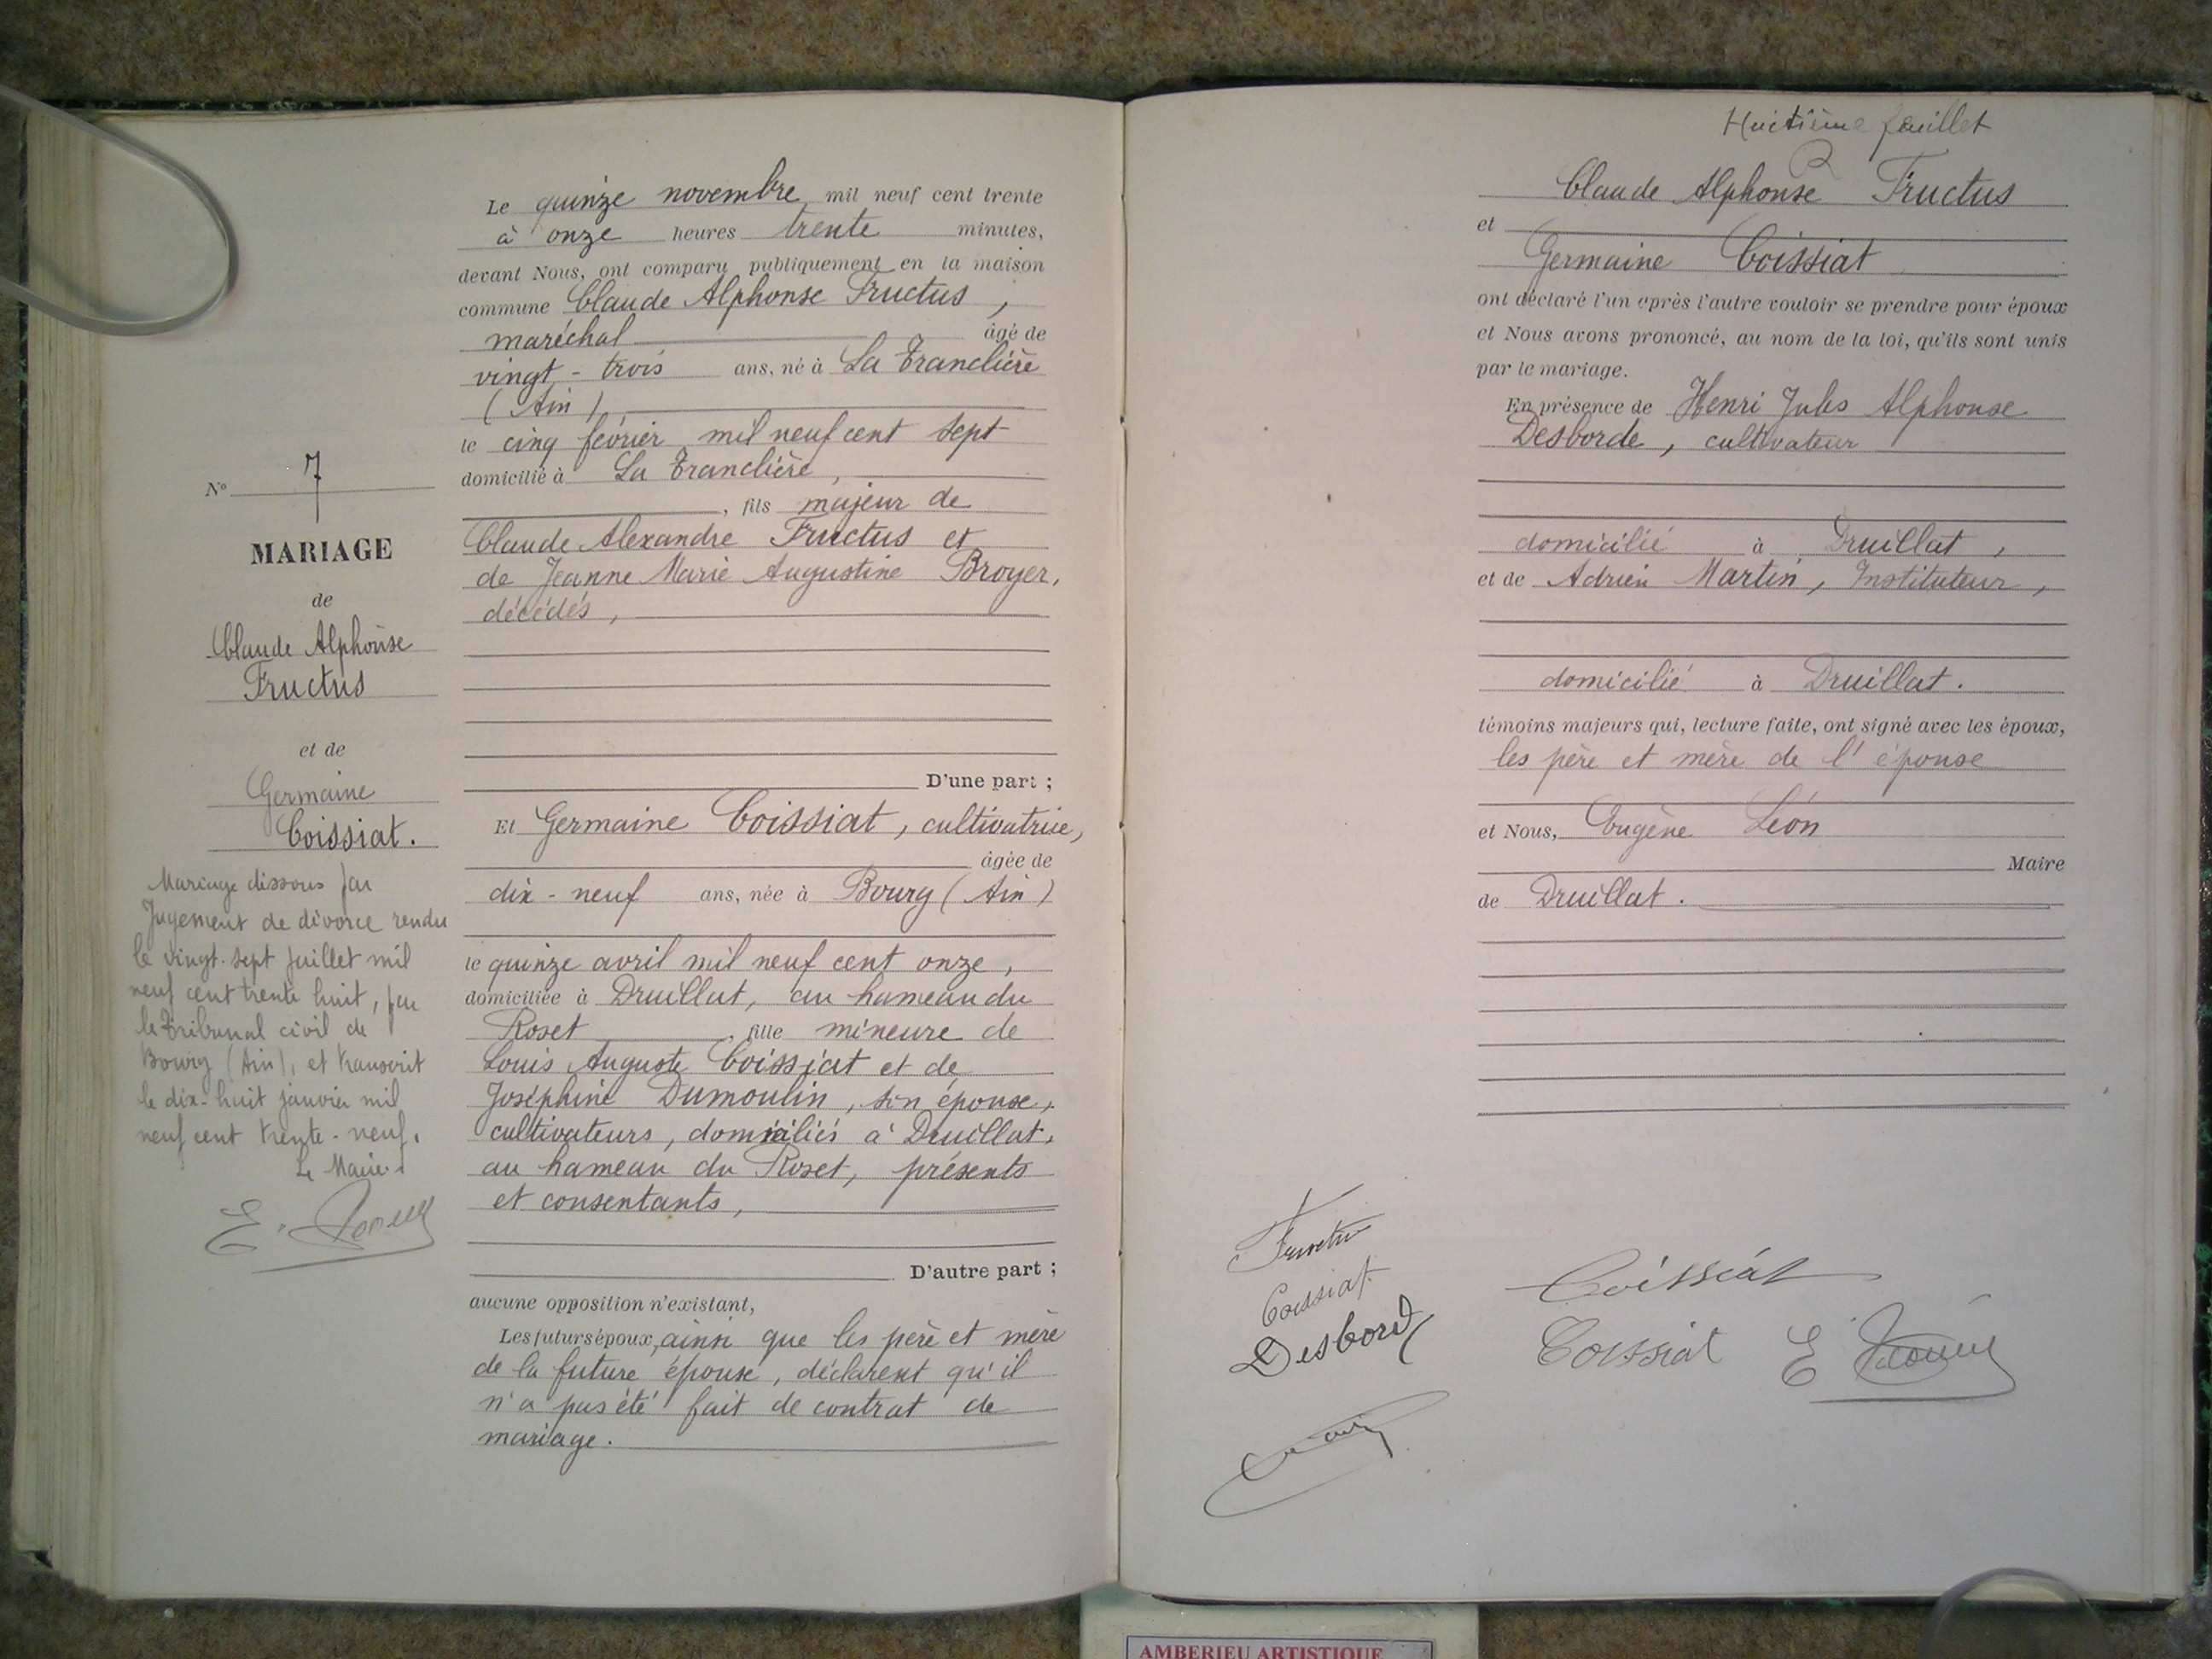 N° 7
MARIAGE
de
Claude Alphonse
Fructus
et de
Germaine
Coissiat.
Mariage dissous par
Jugement de divorce rendu
le vingt-sept juillet mil
neuf cent trente huit, par
le tribunal civil de
Bourg (Ain), et transcrit
le dix-huit janvier mil
neuf cent trente-neuf.
Le Maire
Le quinze novembre mil neuf cent trente
à onze heures trente minutes,
devant Nous, ont comparu publiquement en la maison
commune Claude Alphonse Fructus,
maréchal âgé de
vingt-trois ans, né à La Tranclière
(Ain)
le cinq février mil neuf cent sept
domicilié à La Tranclière,
, fils majeur de
Claude Alexandre Fructus et
de Jeanne Marie Augustine Broyer,
décédés,
D'une part ;
Et Germaine Coissiat, cultivatrice,
âgée de
dix-neuf ans, née à Bourg (Ain)
le quinze avril mil neuf cent onze,
domiciliée à Druillat, au hameau du
Roset, fille mineure de
Louis Auguste Coissiat et de
Joséphine Dumoulin, son épouse,
cultivateurs, domiciliés à Druillat,
au hameau du Roset, présents
et consentants,
D'autre part ;
aucune opposition n'existant,
Les futurs époux, ainsi que les père et mère
de la future épouse, déclarent qu'il
n'a pas été fait de contrat de
mariage.
Huitième feuillet
Claude Alphonse Fructus
et
Germaine Coissiat
ont déclaré l'un après l'autre vouloir se prendre pour époux
et Nous avons prononcé, au nom de la loi, qu'ils sont unis
par le mariage.
En présence de Henri Jules Alphonse
Desborde, cultivateur
domicilié à Druillat,
et de Adrien Martin, Instituteur,
domicilié à Druillat.
témoins majeurs qui, lecture faite, ont signé avec les époux,
les père et mère de l'épouse
et Nous, Eugène Léon
Maire
de Druillat.
Fructus
Coissiat
Coissiat
Desbord
Coissiat
AMBERIEU ARTISTIQUE